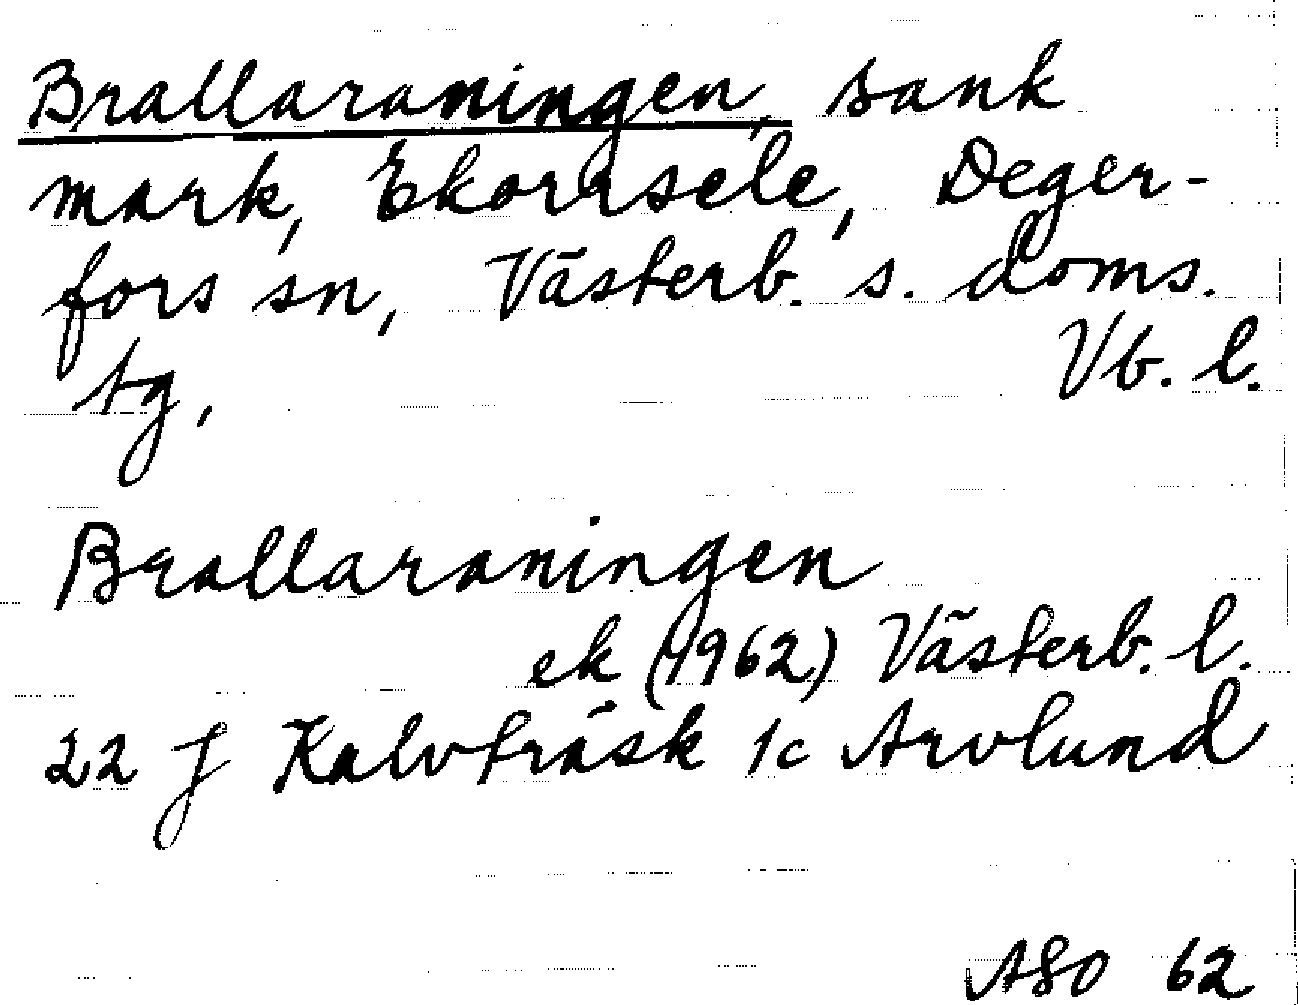 Brallaraningen, sank
mark, Ekorrsele, Deger-
fors sn, Västerb. s. doms.
tg, Vb. l.
Brallaraningen
ek (1962) Västerb. l.
22 J Kalvträsk 1c Arvlund
ASO 62